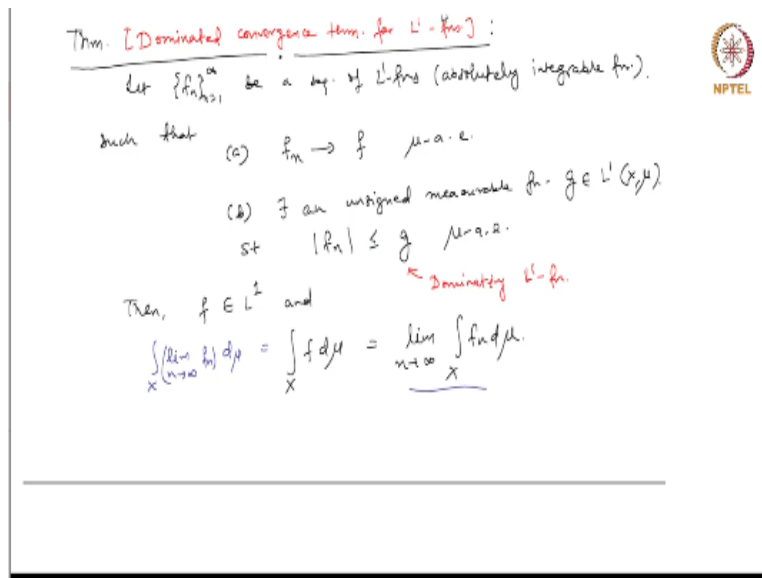 Thm. [Dominated convergence thm. for L¹-fns] :
NPTEL
Let {fₙ}ₙ₌₁^∞ be a seq. of L¹-fns (absolutely integrable fn.).
such that
(a) fₙ → f μ-a.e.
(b) ∃ an unsigned measurable fn. g ∈ L¹(X,μ)
st |fₙ| ≤ g μ-a.e.
↖ Dominating L¹-fn.
Then, f ∈ L¹ and
∫_X (lim_{n→∞} fₙ) dμ = ∫_X f dμ = lim_{n→∞} ∫_X fₙ dμ.